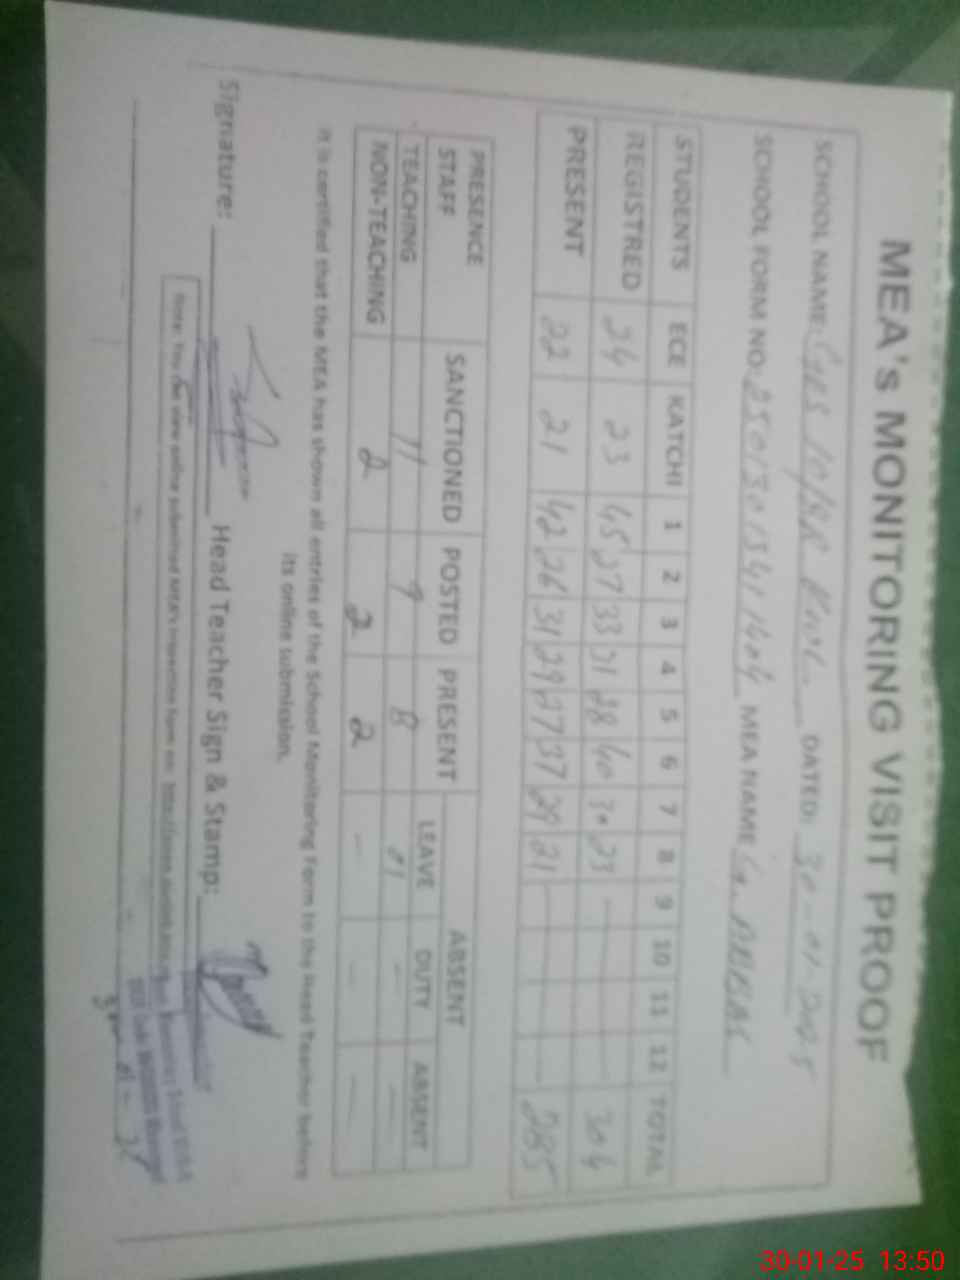 MEA's MONITORING VISIT PROOF
SCHOOL NAME: DATED: 30-01-2025
SCHOOL FORM NO: MEA NAME
STUDENTS ECE KATCHI 1 2 3 4 5 6 7 8 9 10 11 12 TOTAL
REGISTRED 24 23 45 37 33 31 28 40 30 23 — — — — 304
PRESENT 22 21 42 26 31 29 27 37 29 21 — — — — 285
PRESENCE SANCTIONED POSTED PRESENT ABSENT
STAFF LEAVE DUTY ABSENT
TEACHING 11 9 8 01 — —
NON-TEACHING 2 2 2 — — —
It is certified that the MEA has shown all entries of the School Monitoring Form to the Head Teacher before
its online submission.
Signature: Head Teacher Sign & Stamp:
Note: You can view online submitted MEA's inspection form on:
30-01-25 13:50